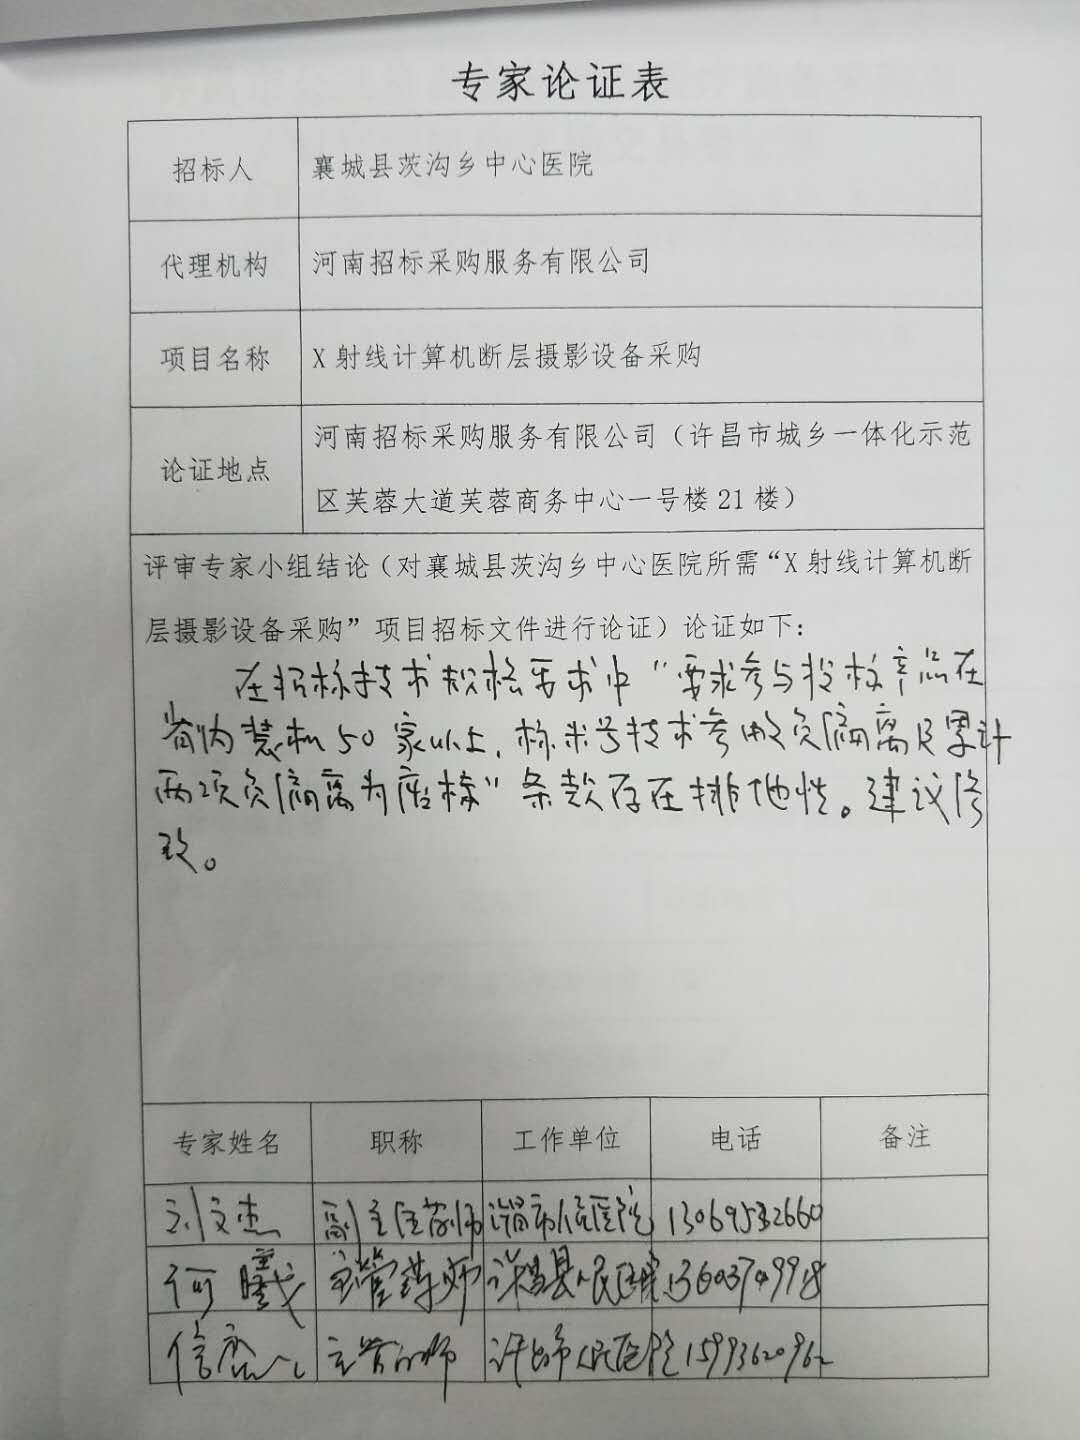 专家论证表
招标人 襄城县茨沟乡中心医院
代理机构 河南招标采购服务有限公司
项目名称 X射线计算机断层摄影设备采购
论证地点 河南招标采购服务有限公司（许昌市城乡一体化示范
区芙蓉大道芙蓉商务中心一号楼21楼）
评审专家小组结论（对襄城县茨沟乡中心医院所需“X射线计算机断
层摄影设备采购”项目招标文件进行论证）论证如下：
在招标技术规格要求中“要求参与投标产品在
省内装机50家以上，标米号技术参数负偏离及累计
两项负偏离为废标”条款存在排他性。建议修
改。
专家姓名 职称 工作单位 电话 备注
刘文杰 副主任药师 许昌市人民医院 13069532660
何曦 主管药师 许昌县人民医院 13603749918
信 主管 师 许昌市人民医院 15993620962